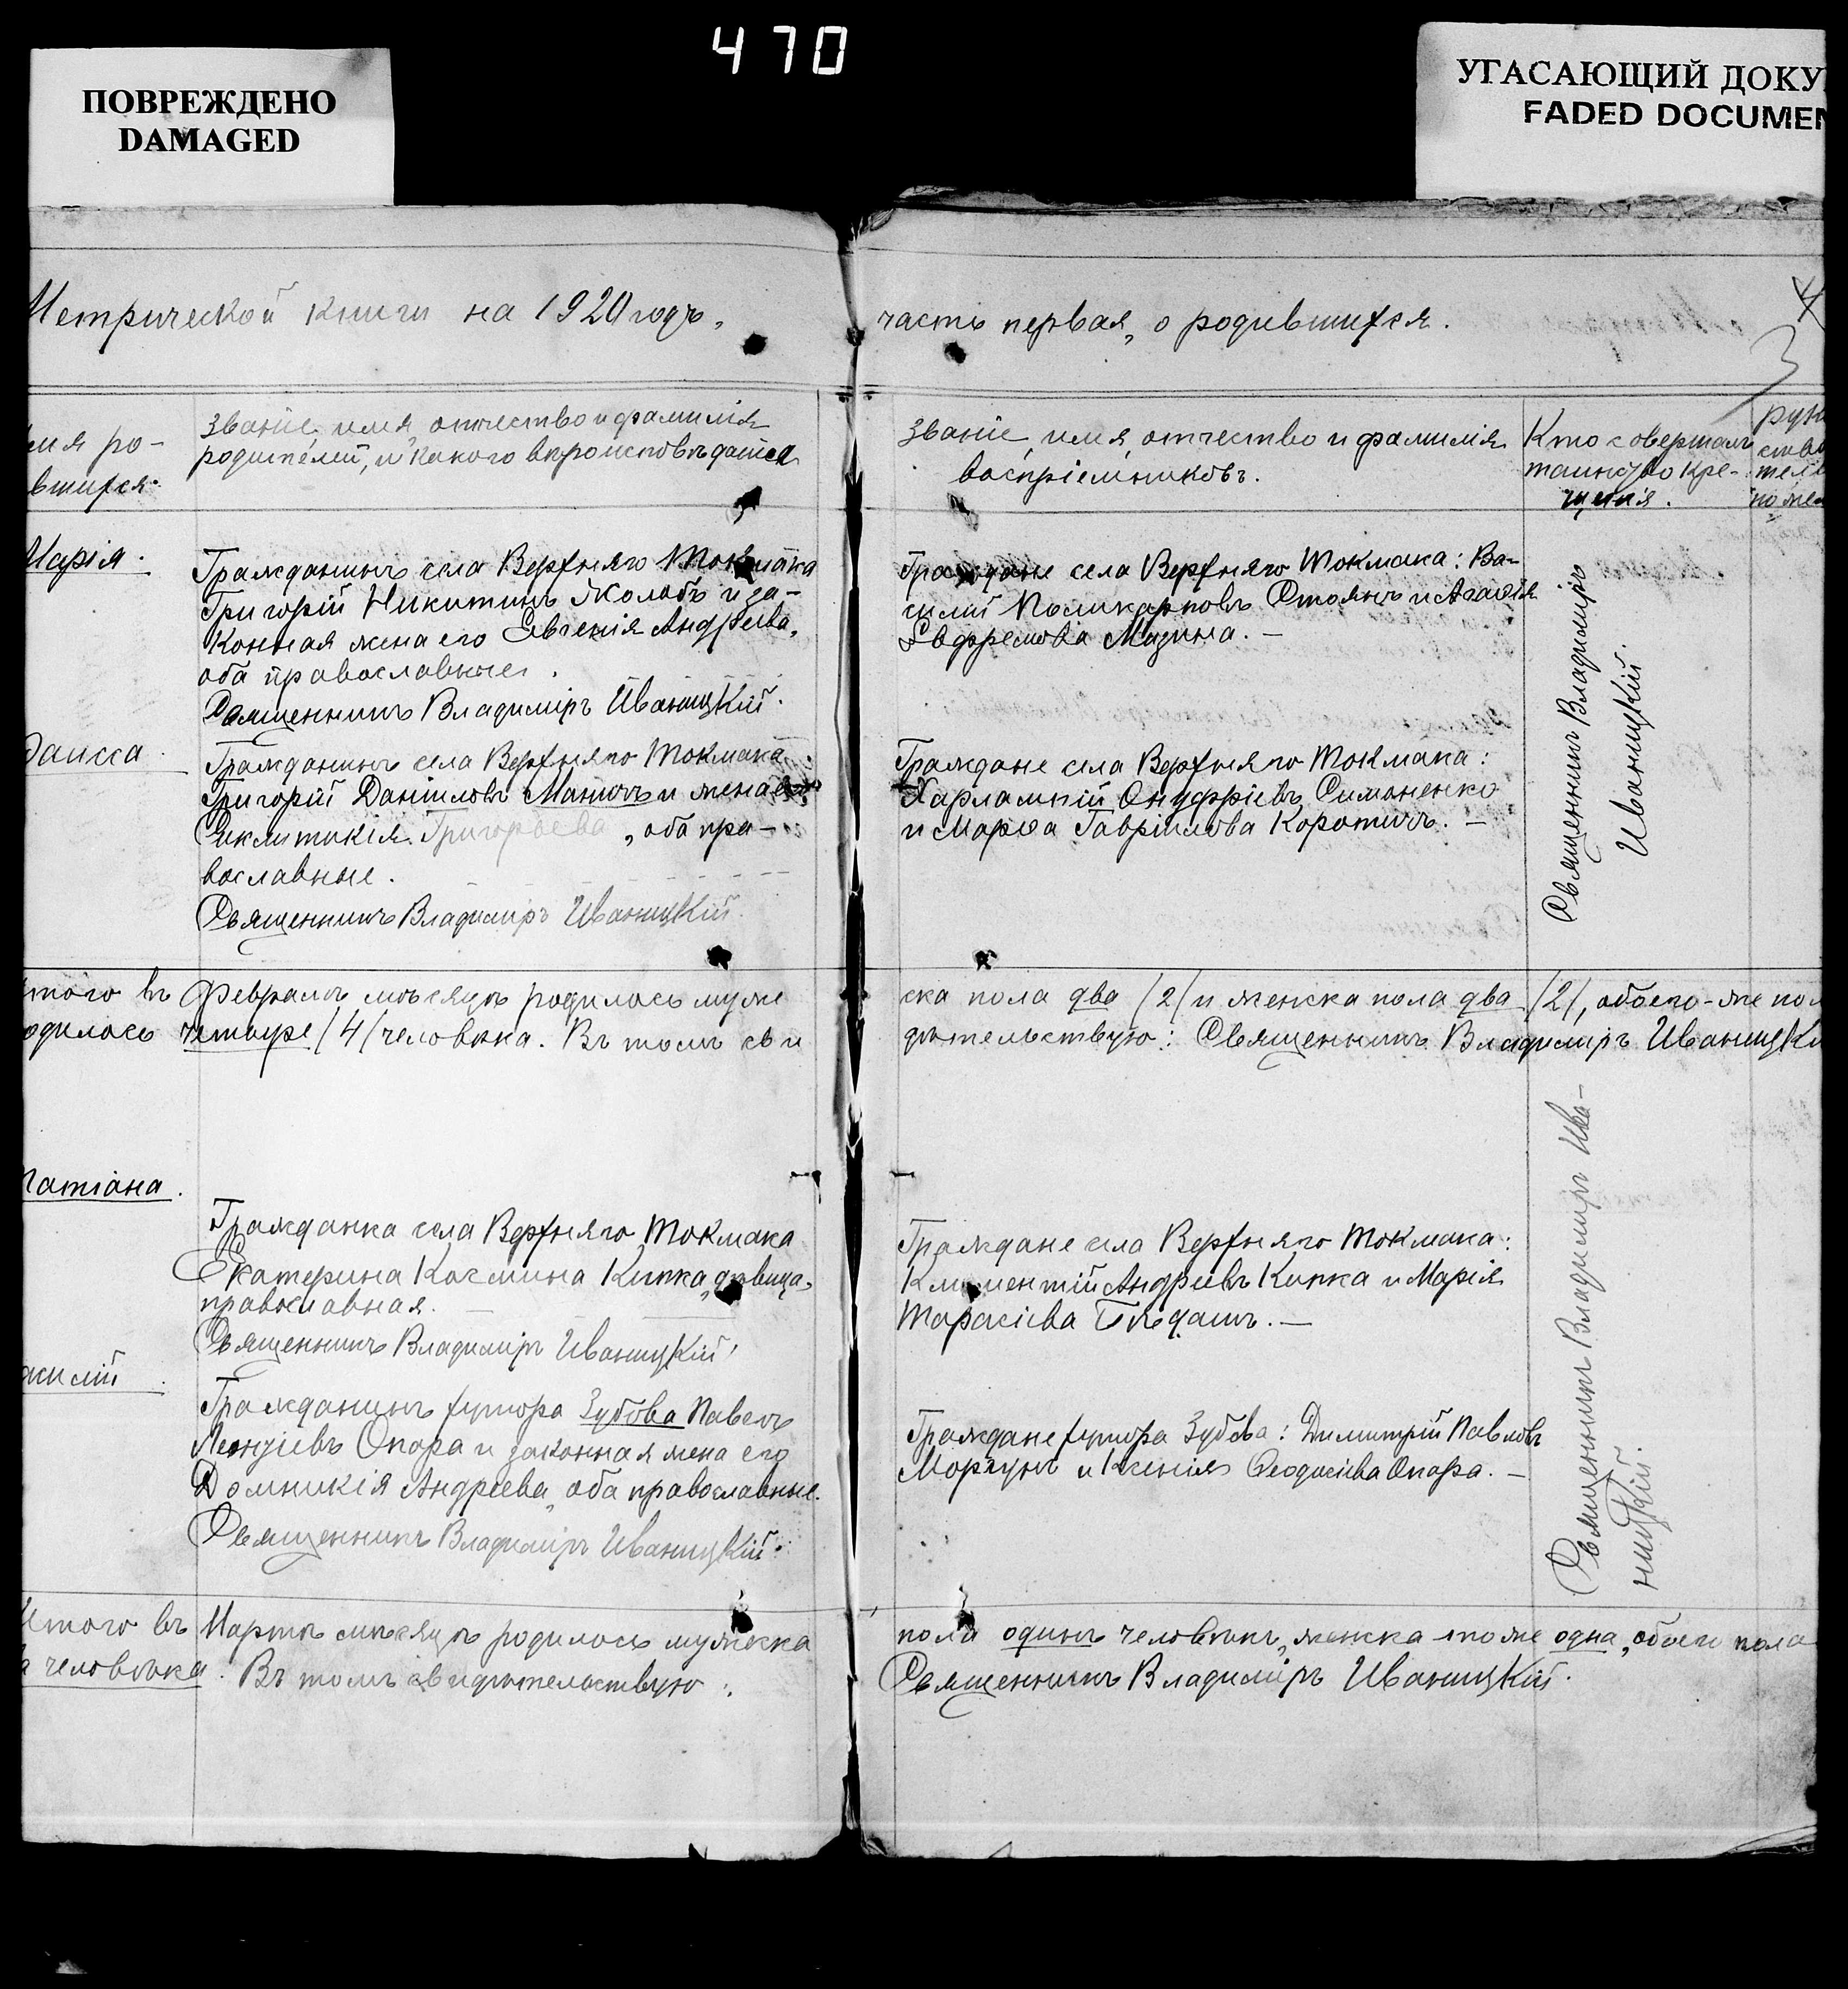 470
ПОВРЕЖДЕНО
DAMAGED
УГАСАЮЩИЙ ДОКУ
FADED DOCUMEN
Метрической книги на 1920 годъ,
часть первая, о родившихся.
4
мя ро-
вшихся.
Званіе, имя, отчество и фамилія
родителей, и какого
Званіе, имя, отчество и фамилія
воспріемниковъ.
Кто совершалъ
таинство кре-
щенія.
Марія.
Гражданинъ села Верхняго Токмака
Григорій Никитинъ Жолобъ и за-
конная жена его Евгенія Андреева,
оба православные.
Священникъ Владиміръ Иваницкій.
Граждане села Верхняго Токмака: Ва-
силій Поликарповъ Стоянъ и Агафія
Евфремова Мизина. —
Священникъ Владиміръ
Иваницкій.
даисса
Гражданинъ села Верхняго Токмака
Григорій Даніиловъ и жена его
Синклитикія Григорьева, оба пра-
вославные.
Священникъ Владиміръ Иваницкій.
Граждане села Верхняго Токмака:
Харлампій Онуфріевъ Симоненко
и Марѳа Гавріилова Коротичъ. —
того въ Февралѣ мѣсяцѣ родилось муже
ска пола два /2/ и женска пола два /2/, обоего-же пол
одилось четыре /4/ человѣка. Въ томъ сви
дѣтельствую: Священникъ Владиміръ Иваницкі
Татіана.
Гражданка села Верхняго Токмака
Екатерина Космина Кипка, дѣвица,
православная. —
Священникъ Владиміръ Иваницкій.
Граждане села Верхняго Токмака:
Климентій Андреевъ Кипка и Марія
Тарасіева —
Священникъ Владиміръ Ива-
ницкій.
асилій
Гражданинъ хутора Зубова Павелъ
Леонтіевъ Опора и законная жена его
Домникія Андреева, оба православные.
Священникъ Владиміръ Иваницкій.
Граждане хутора Зубова: Димитрій Павловъ
Моргунъ и Ксенія Ѳеодосіева Опора. —
Итого въ Мартѣ мѣсяцѣ родилось мужеска
пола одинъ человѣкъ, женска тоже одна, обоего пола
а человѣка. Въ томъ свидѣтельствую:
Священникъ Владиміръ Иваницкій.